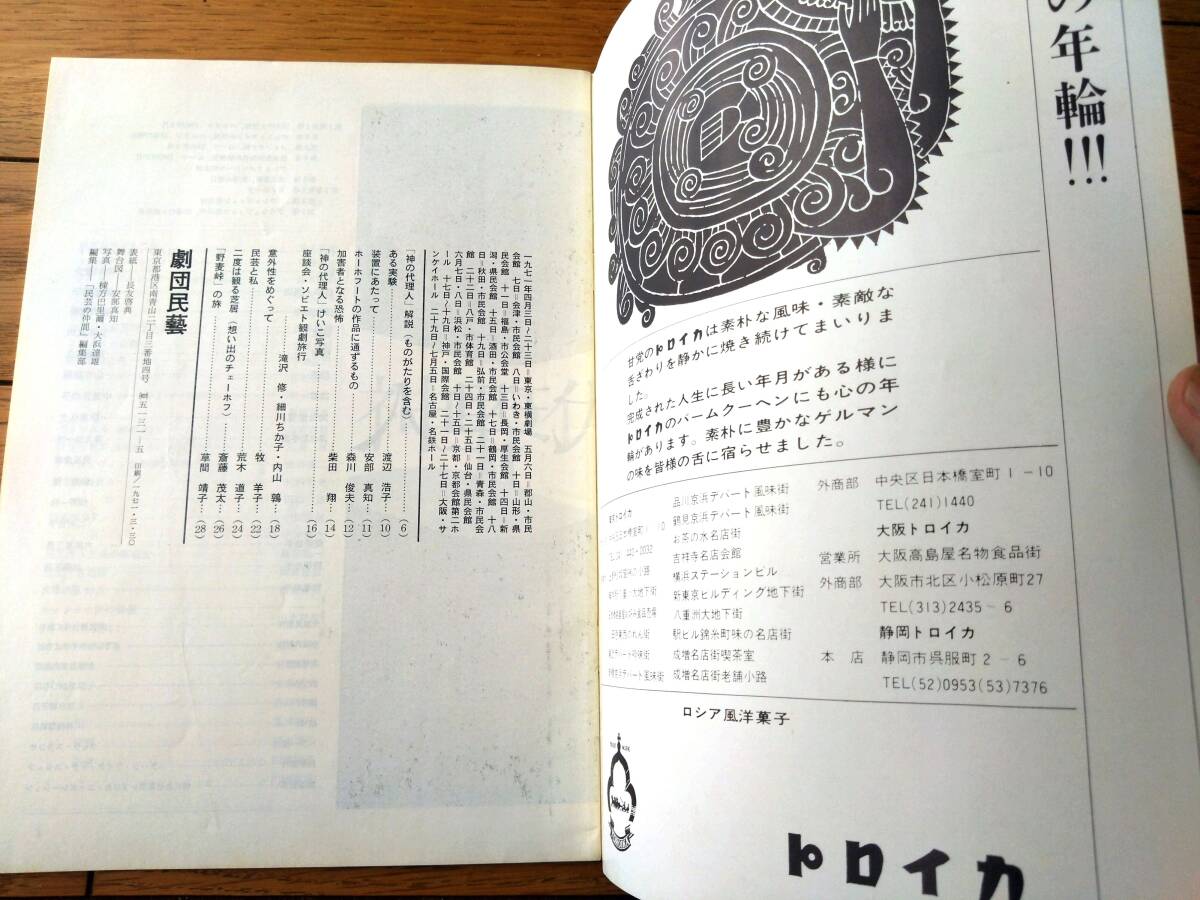 一九七一年四月三日/二十三日=東京・東横劇場　五月六日=郡山・市民
会館　七日=会津・市民会館　八日=いわき・市民会館　十日=山形・県
民会館　十一日=福島・市公会堂　十三日=長岡・厚生会館　十四日=新
潟・県民会館　十五日=酒田・市民会館　十七日=鶴岡・市民会館　十八
日=秋田・市民会館　十九日=弘前・市民会館　二十一日=青森・市民会
館　二十二日=八戸・市体育館　二十四日・二十五日=仙台・県民会館
六月七日・八日=浜松・市民会館　十日/十五日=京都・京都会館第二ホ
ール　十七日/十九日=神戸・国際会館　二十一日/二十七日=大阪・サ
ンケイホール　二十九日/七月五日=名古屋・名鉄ホール
「神の代理人」解説（ものがたりを含む）……(6)
ある実験……渡辺　浩子…(10)
装置にあたって……安部　真知…(11)
ホーホフートの作品に通ずるもの……森川　俊夫…(12)
加害者となる恐怖……柴田　翔…(14)
「神の代理人」けいこ写真……(16)
座談会・ソビエト観劇旅行
……滝沢　修・細川ちか子・内山　鶉…(18)
意外性をめぐって……牧　羊子…(22)
民芸と私……荒木　道子…(24)
二度は観る芝居（想い出のチェーホフ）……斎藤　茂太…(26)
『野麦峠』の旅……草間　靖子…(28)
劇団民藝
東京都港区南青山二丁目三番地四号
印刷/一九七一・三・三〇
表紙――長友啓典
舞台図――安部真知
写真――棟方巴里爾・大浜達雄
編集――「民芸の仲間」編集部
の年輪!!!
甘党のトロイカは素朴な風味・素敵な
舌ざわりを静かに焼き続けてまいりま
した。
完成された人生に長い年月がある様に
トロイカのバームクーヘンにも心の年
輪があります。素朴に豊かなゲルマン
の味を皆様の舌に宿らせました。
品川京浜デパート風味街
鶴見京浜デパート風味街
お茶の水名店街
吉祥寺名店会館
横浜ステーションビル
新東京ビルディング地下街
八重洲大地下街
駅ビル錦糸町味の名店街
成増名店街喫茶室
成増名店街老舗小路
外商部　中央区日本橋室町1-10
TEL(241)1440
大阪トロイカ
営業所　大阪高島屋名物食品街
外商部　大阪市北区小松原町27
TEL(313)2435～6
静岡トロイカ
本店　静岡市呉服町2-6
TEL(52)0953(53)7376
ロシア風洋菓子
トロイカ